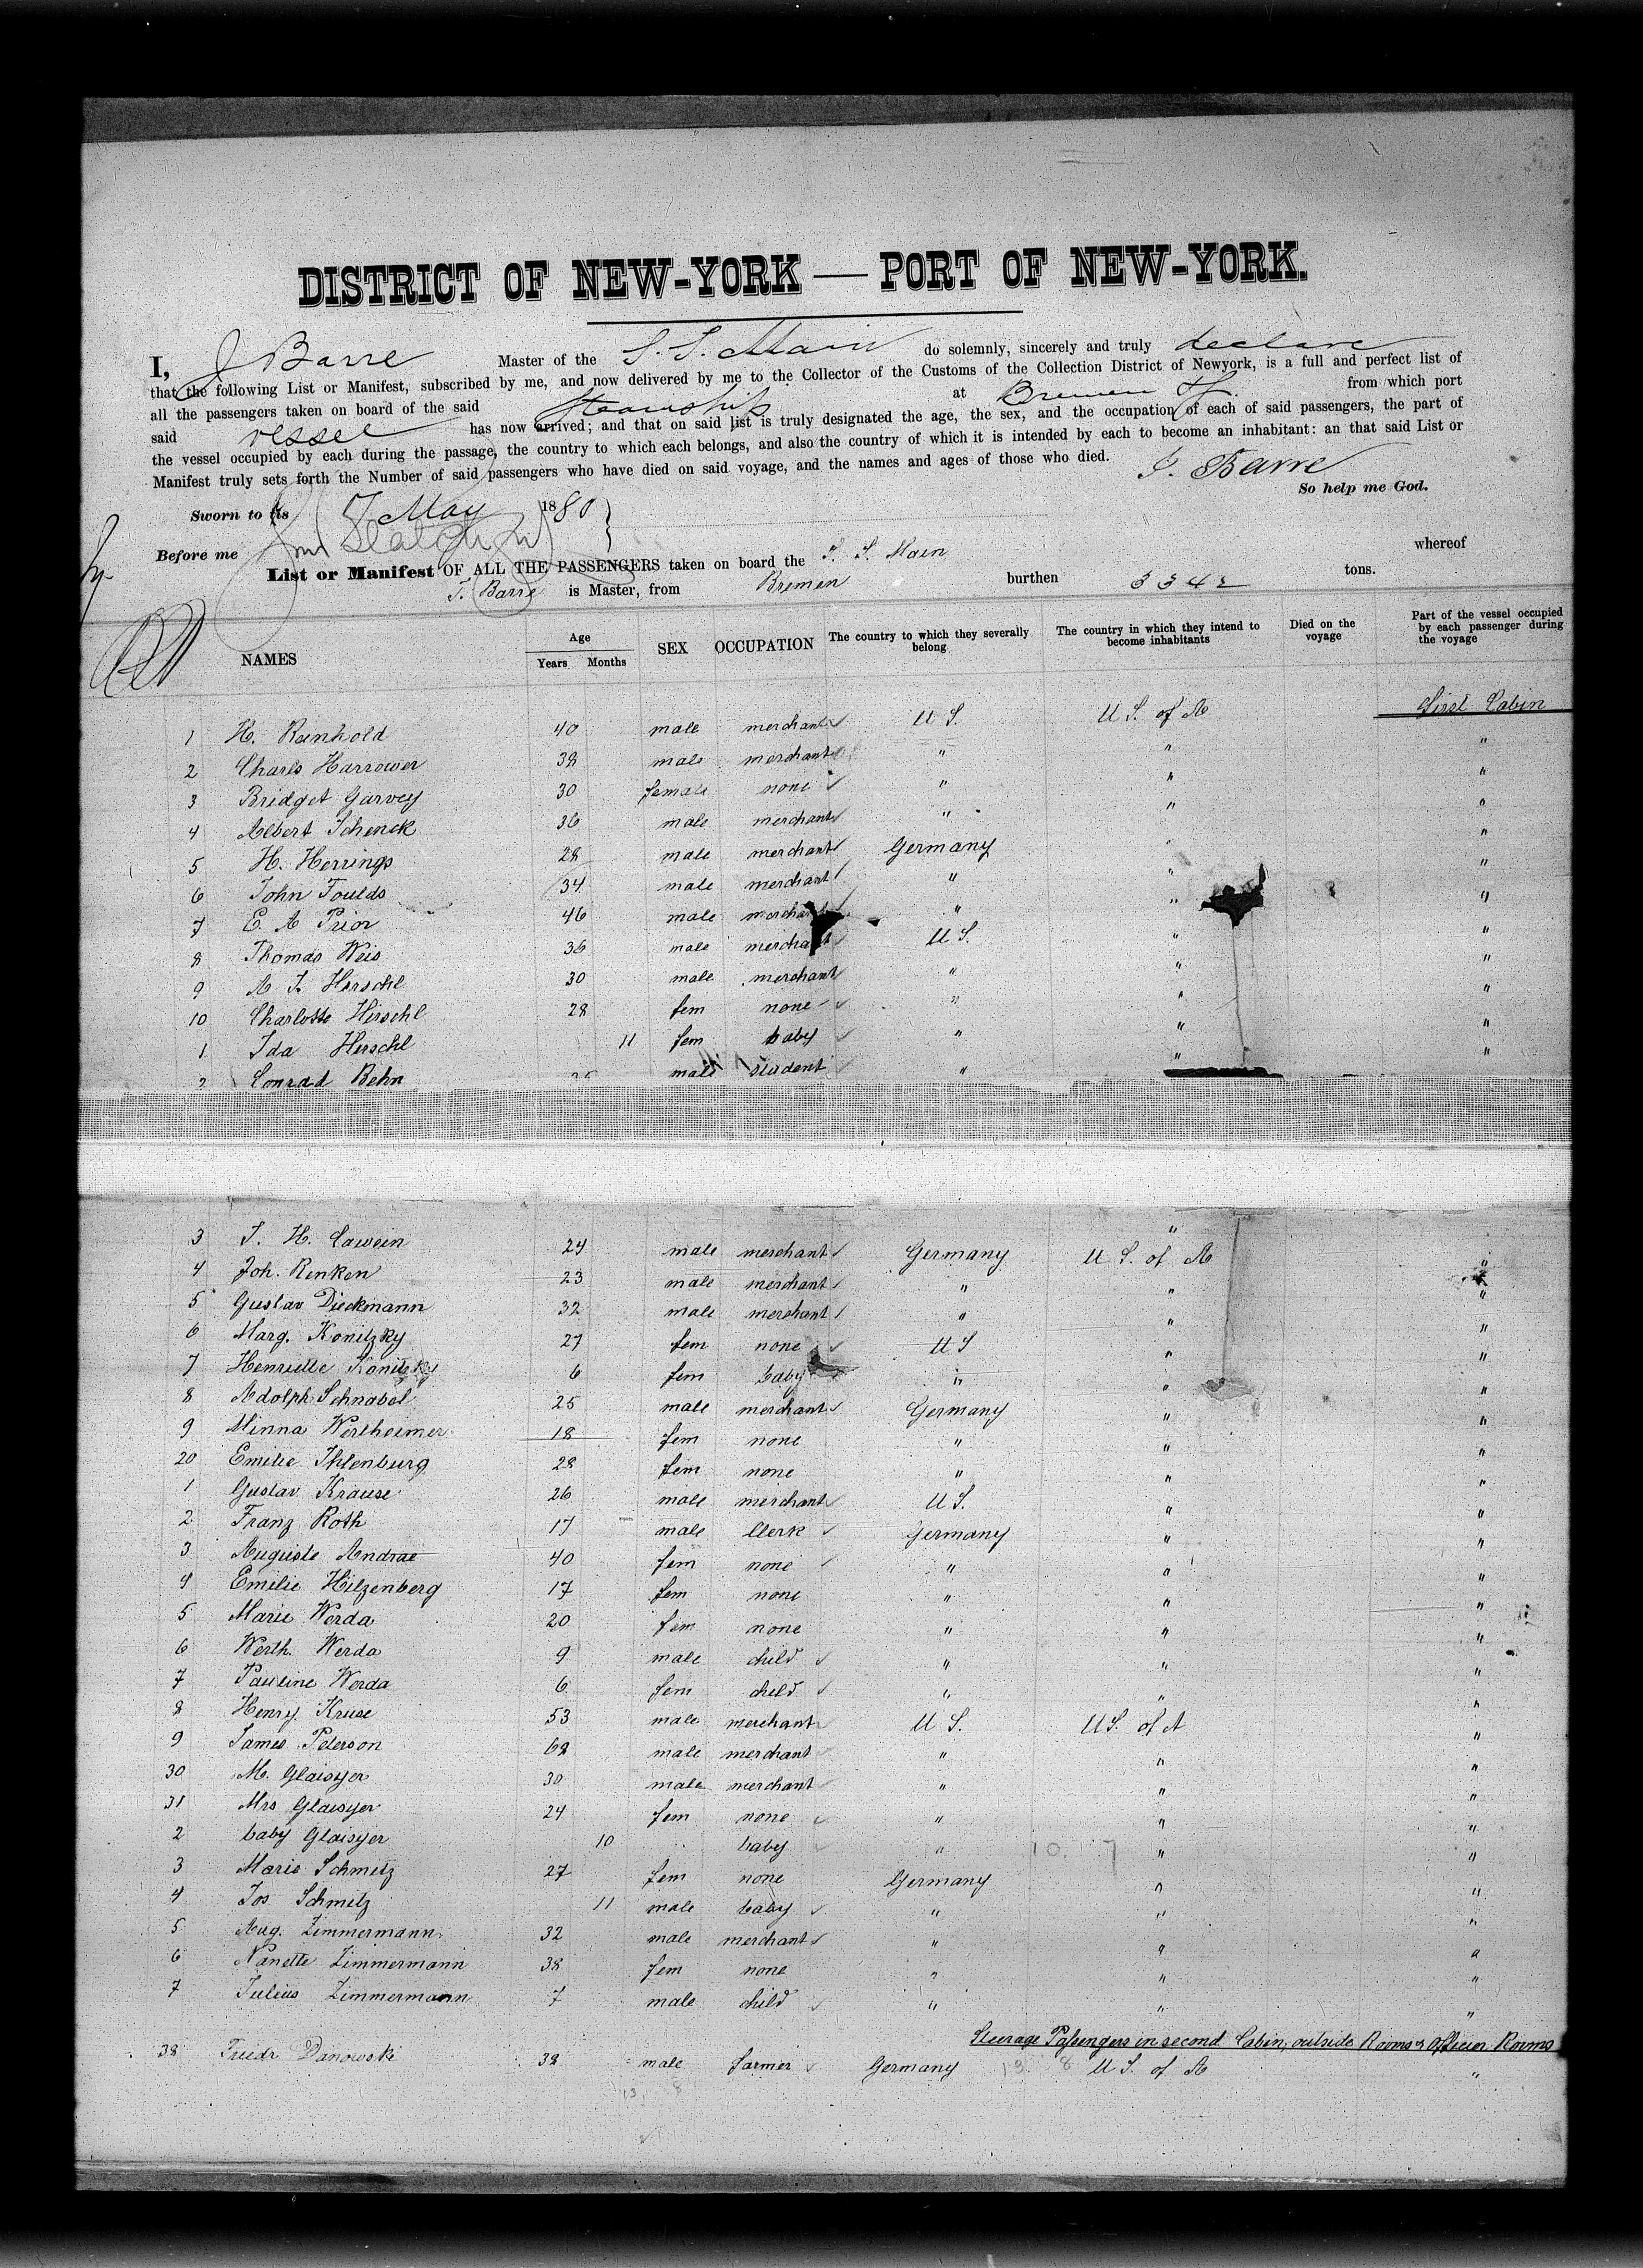 DISTRICT OF NEW-YORK — PORT OF NEW-YORK.
I, J Barre Master of the S. S. Main do solemnly, sincerely and truly declare
that the following List or Manifest, subscribed by me, and now delivered by me to the Collector of the Customs of the Collection District of Newyork, is a full and perfect list of
all the passengers taken on board of the said steamship at Bremen from which port
said vessel has now arrived; and that on said list is truly designated the age, the sex, and the occupation of each of said passengers, the part of
the vessel occupied by each during the passage, the country to which each belongs, and also the country of which it is intended by each to become an inhabitant: an that said List or
Manifest truly sets forth the Number of said passengers who have died on said voyage, and the names and ages of those who died. J. Barre
So help me God.
Sworn to this 7 May 1880
Before me
List or Manifest OF ALL THE PASSENGERS taken on board the S. S. Main whereof
J. Barre is Master, from Bremen burthen 3342 tons.
NAMES Age Years Months SEX OCCUPATION The country to which they severally belong The country in which they intend to become inhabitants Died on the voyage Part of the vessel occupied by each passenger during the voyage
First Cabin
1 H. Reinhold 40 male merchant U S. U S. of A "
2 Charls Harrower 38 male merchant " " "
3 Bridget Garvey 30 female none " " "
4 Albert Schenck 36 male merchant " " "
5 H. Herrings 28 male merchant Germany " "
6 John Foulds 34 male merchant " " "
7 E. A Prior 46 male merchant " " "
8 Thomas Weis 36 male merchant U S. " "
9 A J. Herschl 30 male merchant " " "
10 Charlotte Hirschl 28 fem none " " "
1 Ida Herschl 11 fem baby " " "
2 Conrad Behn male student " "
3 J. H. Cawein 24 male merchant Germany U S. of A "
4 Joh. Renken 23 male merchant " " "
5 Gustav Dieckmann 32 male merchant " " "
6 Marg. Konitzky 27 fem none U S " "
7 Henriette Konitzky 6 fem baby " " "
8 Adolph Schnabel 25 male merchant Germany " "
9 Minna Wertheimer 18 fem none " " "
20 Emilie Ihlenburg 28 fem none " " "
1 Gustav Krause 26 male merchant U S. " "
2 Franz Roth 17 male Clerk Germany " "
3 Auguste Andrae 40 fem none " " "
4 Emilie Hilzenberg 17 fem none " " "
5 Marie Werda 20 fem none " " "
6 Werth. Werda 9 male child " " "
7 Pauline Werda 6 fem child " " "
8 Henry Kruse 53 male merchant U S. U S. of A "
9 James Peterson 68 male merchant " " "
30 M. Glaisyer 30 male merchant " " "
31 Mrs Glaisyer 24 fem none " " "
2 baby Glaisyer 10 baby " 10 7 " "
3 Marie Schmelz 27 fem none Germany " "
4 Jos Schmelz 11 male baby " " "
5 Aug. Zimmermann 32 male merchant " " "
6 Nanette Zimmermann 38 fem none " " "
7 Julius Zimmermann 7 male child " " "
Steerage Passengers in second Cabin, outside Rooms & Officer Rooms
38 Friedr Danowski 38 male farmer Germany 13 8 U S. of A "
13. 8